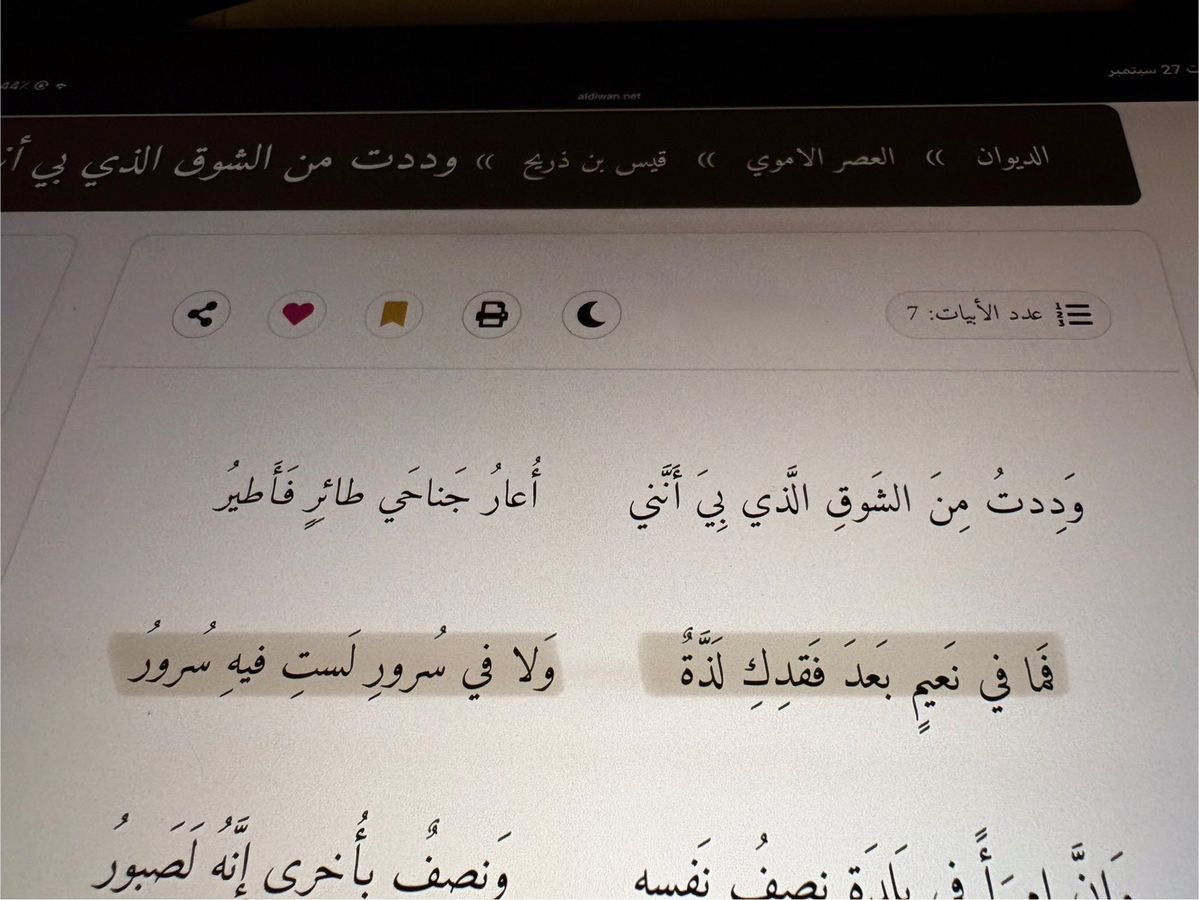 44%
27 سبتمبر
aldiwan.net
الديوان » العصر الاموي » قيس بن ذريح » وددت من الشوق الذي بي
عدد الأبيات: 7
وَدِدتُ مِنَ الشَوقِ الَّذي بِيَ أَنَّني أُعارُ جَناحَي طائِرٍ فَأَطيرُ
فَما في نَعيمٍ بَعدَ فَقدِكِ لَذَّةٌ وَلا في سُرورٍ لَستِ فيهِ سُرورُ
وَإِنَّ اِمرَأً في بَلدَةٍ نِصفُ نَفسِهِ وَنِصفٌ بِأُخرى إِنَّهُ لَصَبورُ